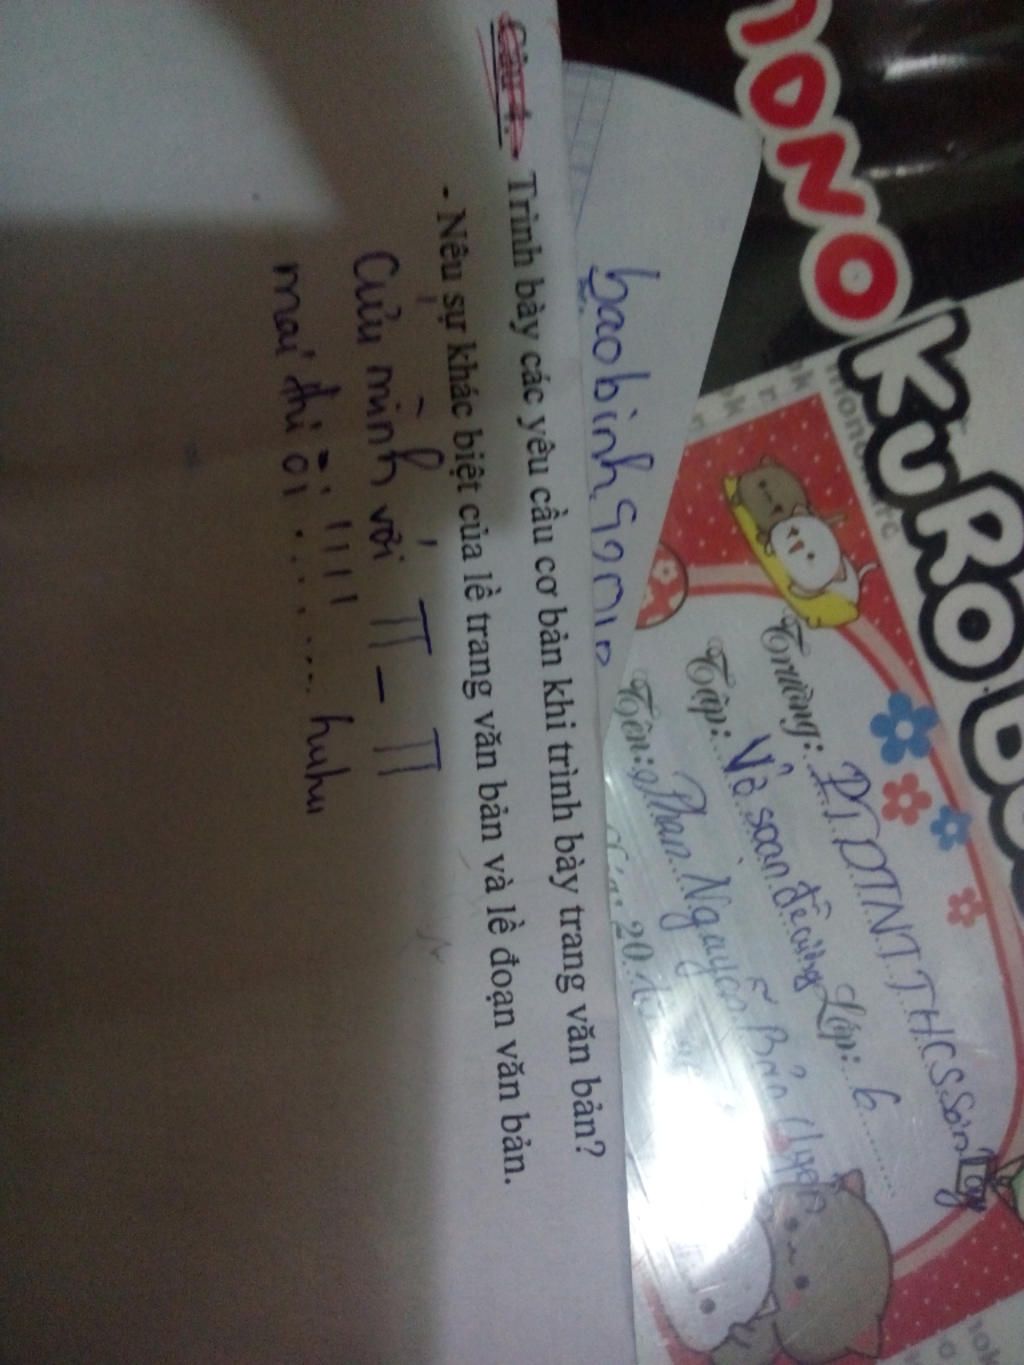 Câu 4: Trình bày các yêu cầu cơ bản khi trình bày trang văn bản?
- Nêu sự khác biệt của lề trang văn bản và lề đoạn văn bản.
Cứu mình với π_π
mai thi òi !!!! .... huhu
MONO
KURO
Trường: PTDTNT THCS Sơn Tây
Tập: Vở soạn đề cương Lớp: 6
Tên: Phan Nguyễn Bảo